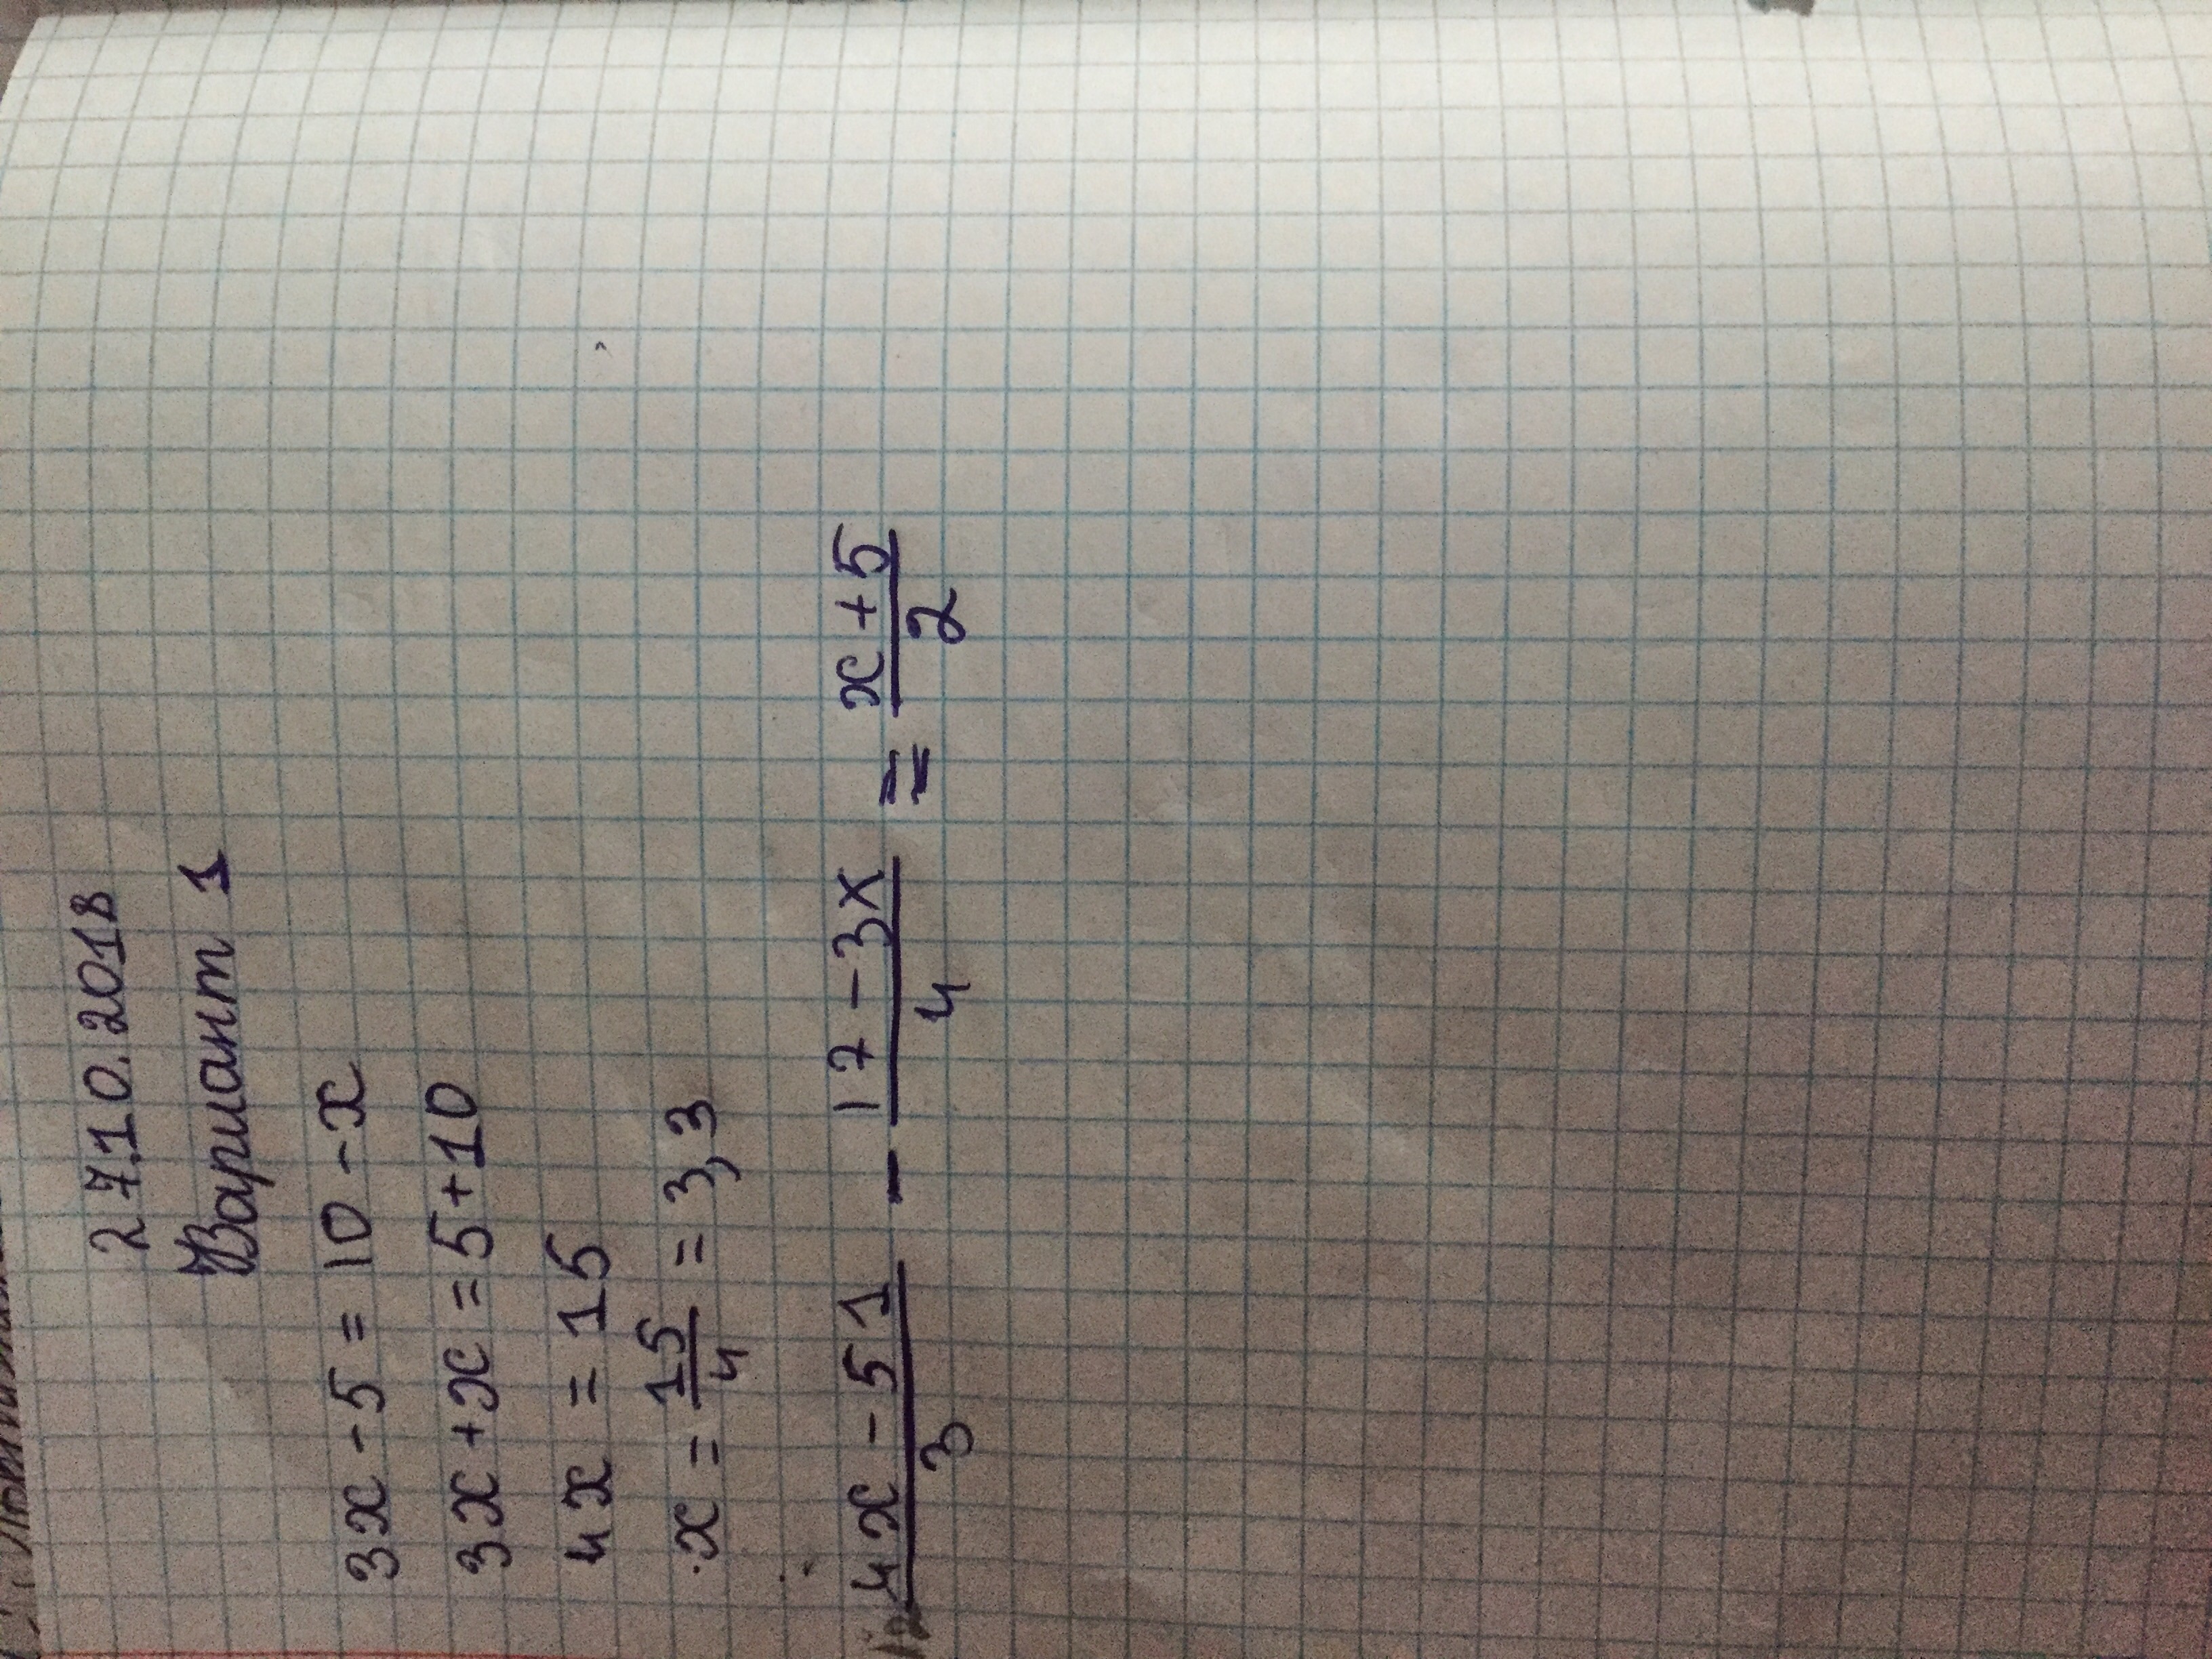 27.10.2018
Вариант 1
3x - 5 = 10 - x
3x + x = 5 + 10
4x = 15
x = 15/4 = 3,3
(4x - 51)/3 - (17 - 3x)/4 = (x + 5)/2